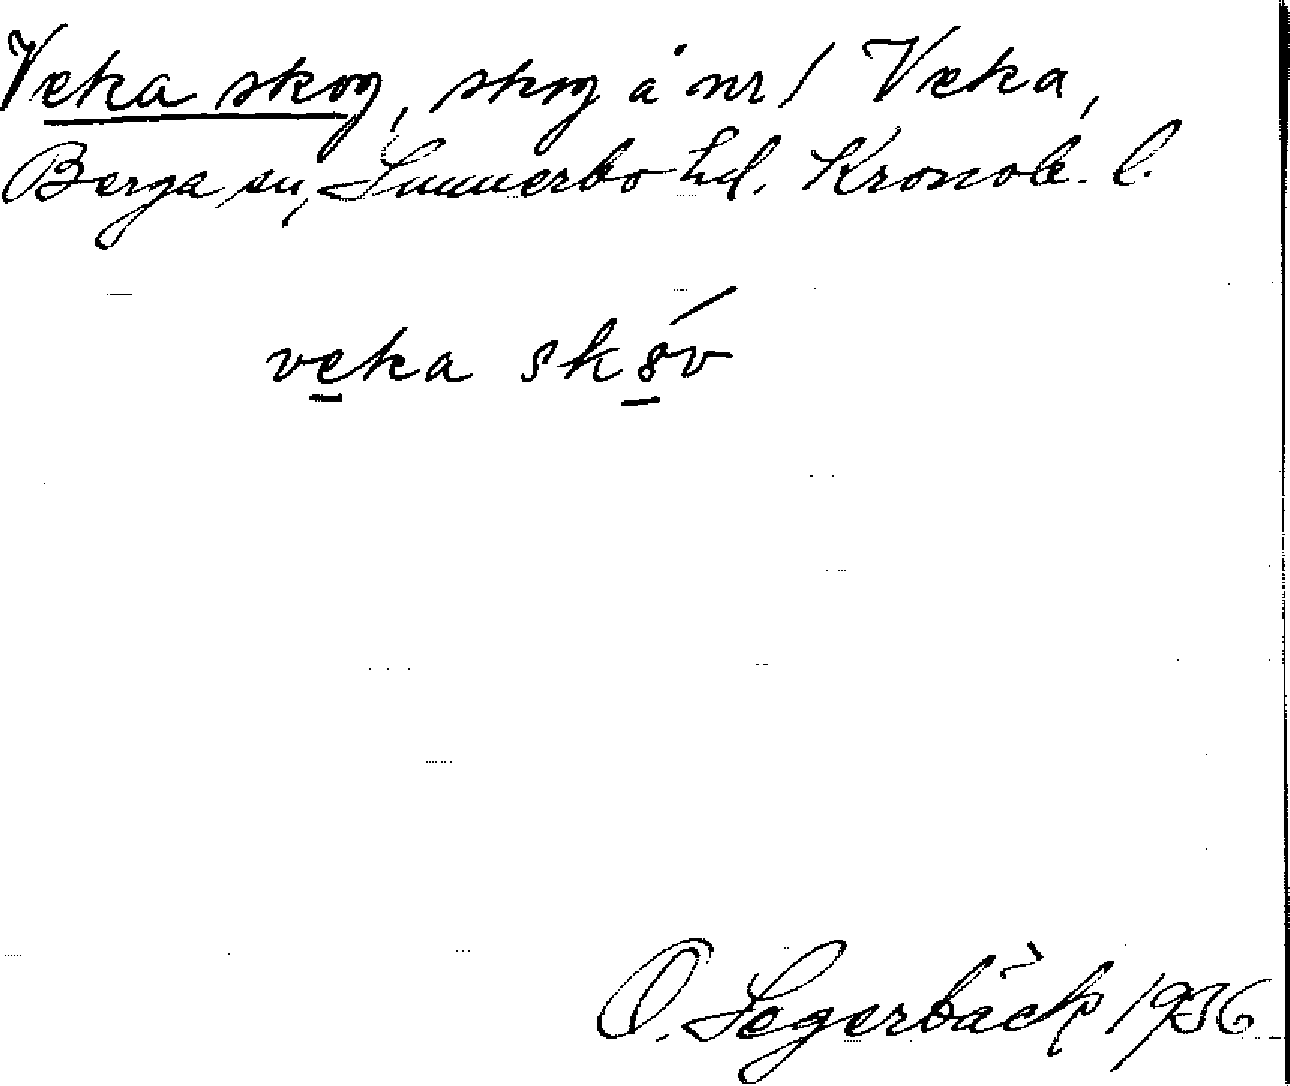 Veka skog, skog å nr 1 Veka,
Berga sn, Sunnerbo hd. Kronob. l.
veka sk
O. Segerbäck 1936